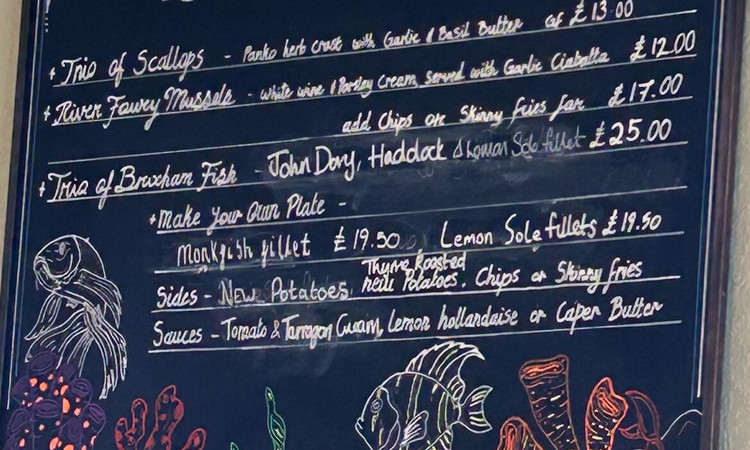 + Trio of Scallops - Panko herb crust with Garlic & Basil Butter GF £13.00
+ River Fowey Mussels - white wine & Parsley Cream, served with Garlic Ciabatta £12.00
add Chips or Skinny fries for £17.00
+ Trio of Brixham Fish - John Dory, Haddock & Lemon Sole fillet £25.00
+ Make Your Own Plate -
Monkfish fillet £19.50 Lemon Sole fillets £19.50
Thyme Roasted
Sides - New Potatoes, new Potatoes. Chips or Skinny fries
Sauces - Tomato & Tarragon Cream, Lemon hollandaise or Caper Butter